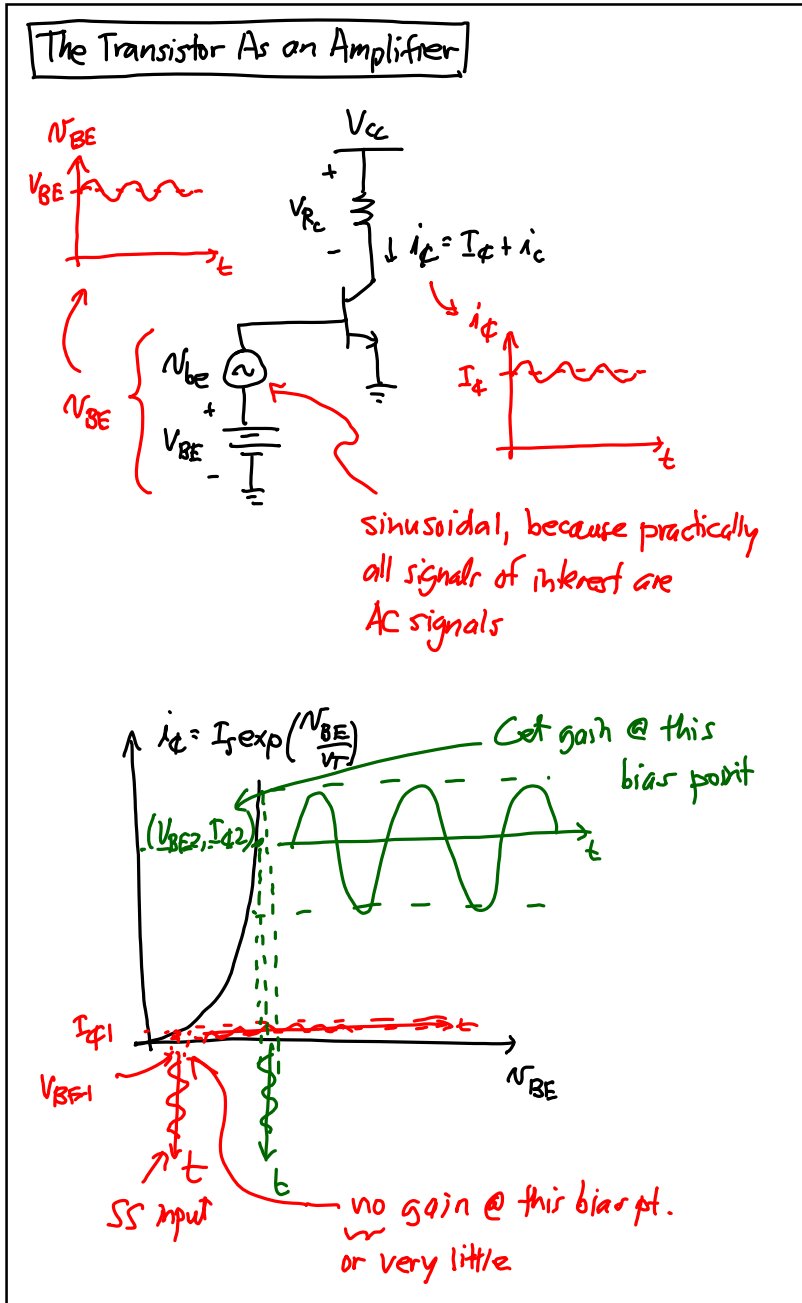 The Transistor As an Amplifier
VCC
vBE
VBE
t
+
VRc
-
iC = IC + ic
iC
IC
t
vBE
vbe
+
VBE
-
sinusoidal, because practically
all signals of interest are
AC signals
iC = IS exp(vBE/VT)
Get gain @ this
bias point
(VBE2, IC2)
t
IC1
t
VBE1
vBE
t
t
SS input
no gain @ this bias pt.
or very little